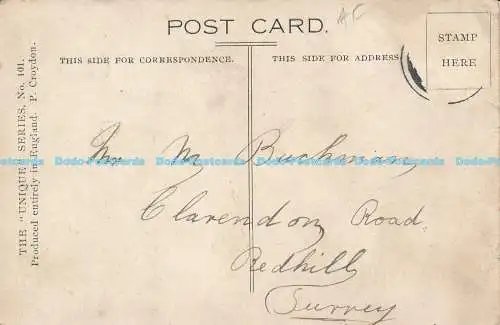 POST CARD.
AF
THIS SIDE FOR CORRESPONDENCE.
THIS SIDE FOR ADDRESS
STAMP
HERE
THE "UNIQUE" SERIES, No. 101.
Produced entirely in England. P. Croydon.
Mr M Buchman,
Dodo-Postcards Dodo-Postcards Dodo-Postcards Dodo-Postcards Dodo-Postcards
Clarendon Road
Redhill
Surrey